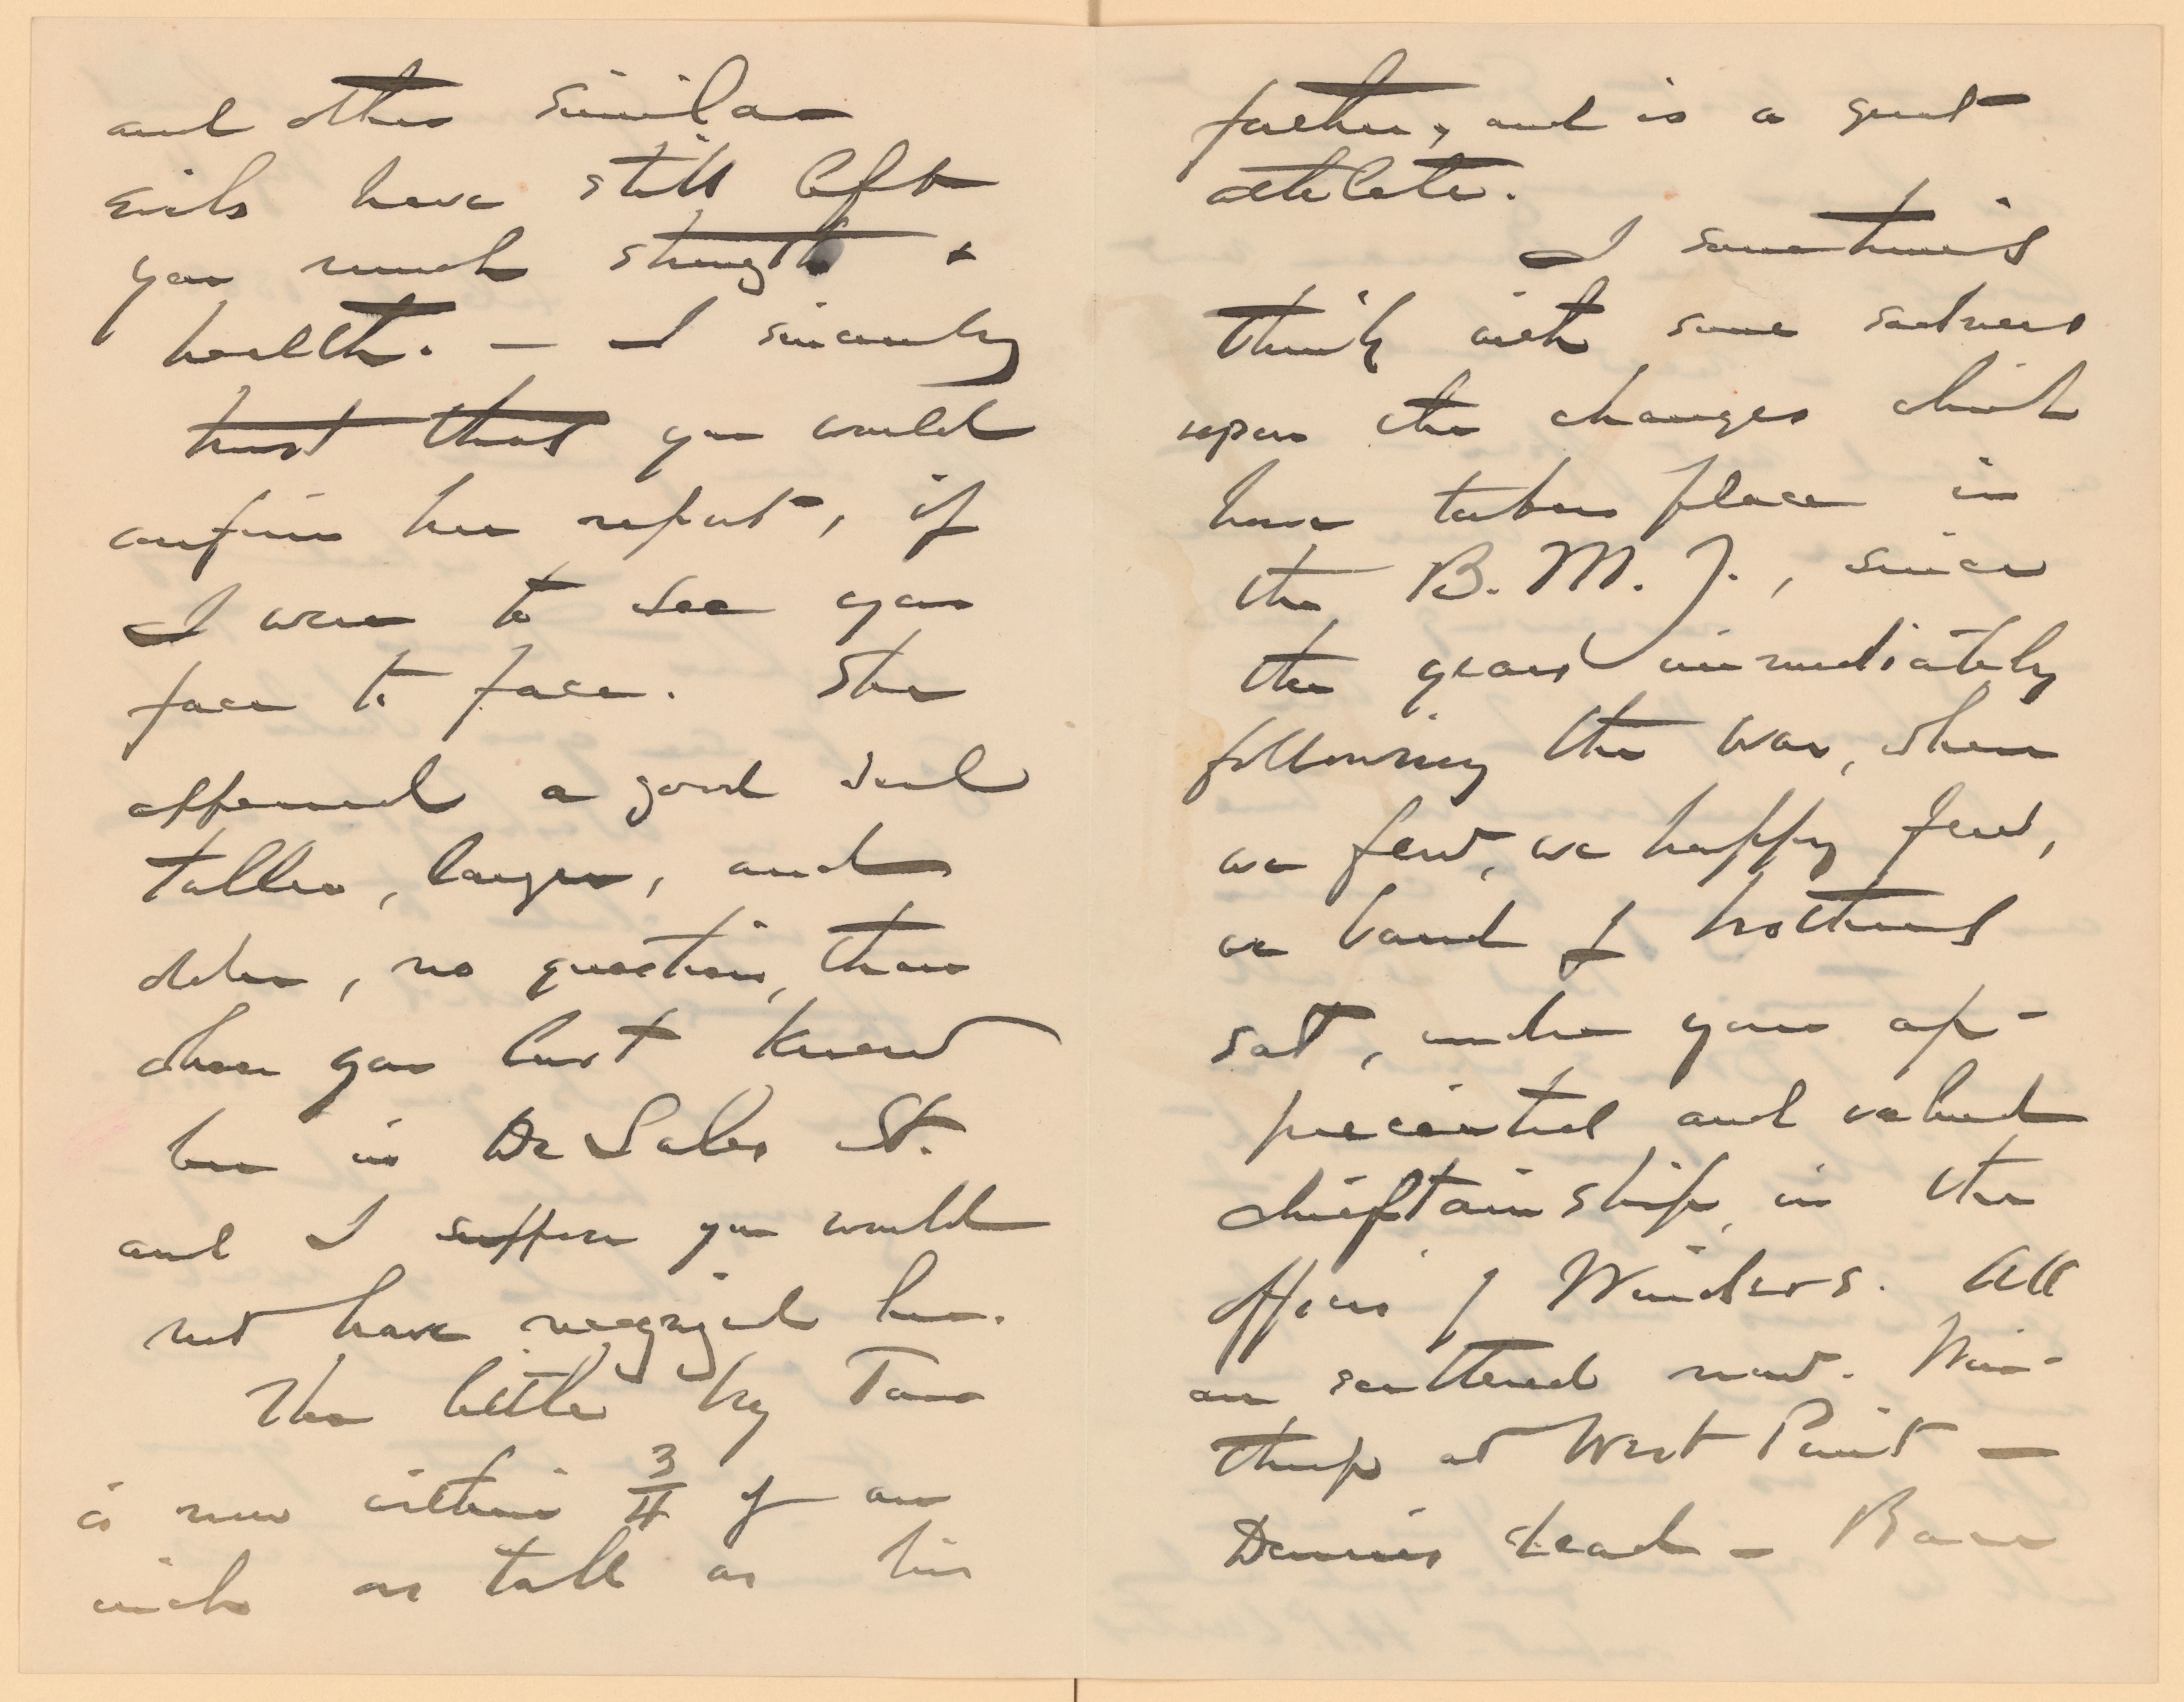 and other similar
evils have still left
you much strength &
health. — I sincerely
trust that you would
confirm her report, if
I were to see you
face to face. She
appeared a good deal
taller, larger, and
older, no question, than
when you last knew
her in De Sales St.
and I suppose you would
not have recognized her.
The little boy Tom
is now within 3/4 of an
inch as tall as his
father, and is a great
athlete.
I sometimes
think with some sadness
upon the changes which
have taken place in
the B. M. J., since
the years immediately
following the war, when
we few, we happy few,
we band of brothers
sat, under your ap-
preciated and valued
chieftainship, in the
office of Winders. All
are scattered now. Win-
throp at West Point —
Dennis dead —